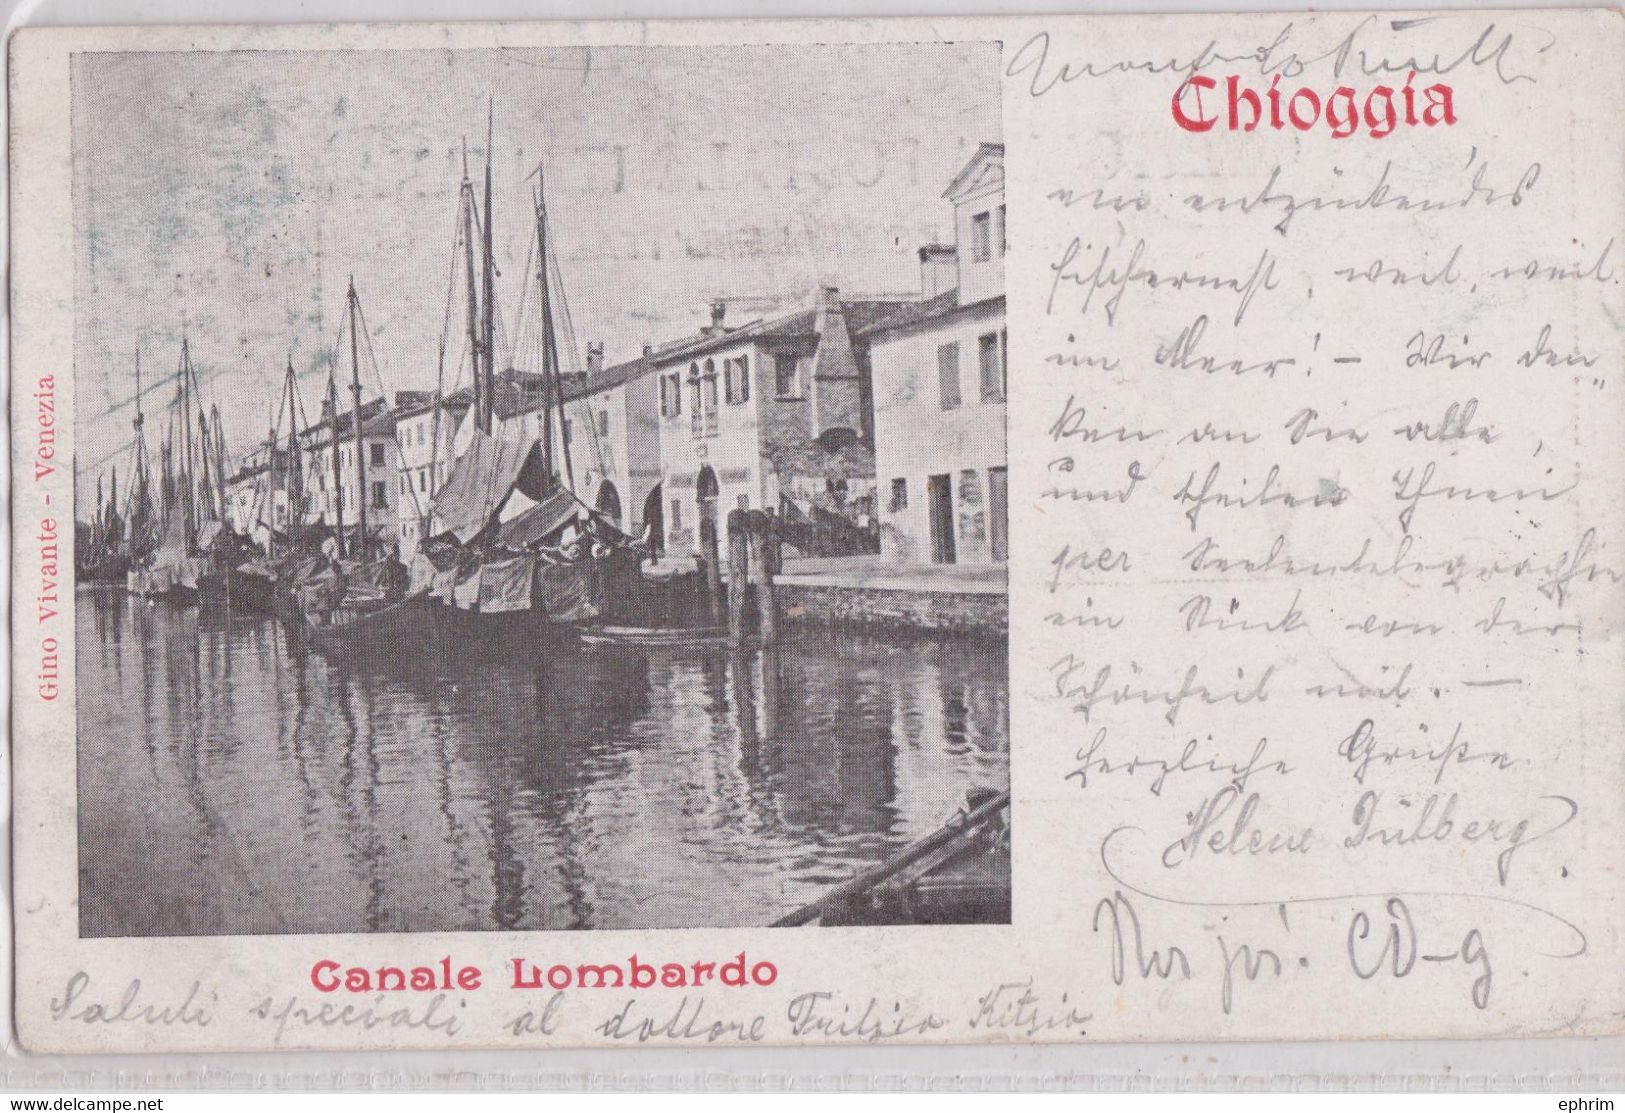 Chioggia
ein entzückendes
Fischernest, weit, weit
im Meer! - Wir den„
ken an Sie alle,
und theilen Ihnen
per Seelentelegraphie
ein Stück von der
Schönheit mit. -
Herzliche Grüße
Helene Dülberg
Gino Vivante - Venezia
Canale Lombardo
Saluti speciali al dottore Fritzio Kitzio
delcampe.net
ephrim